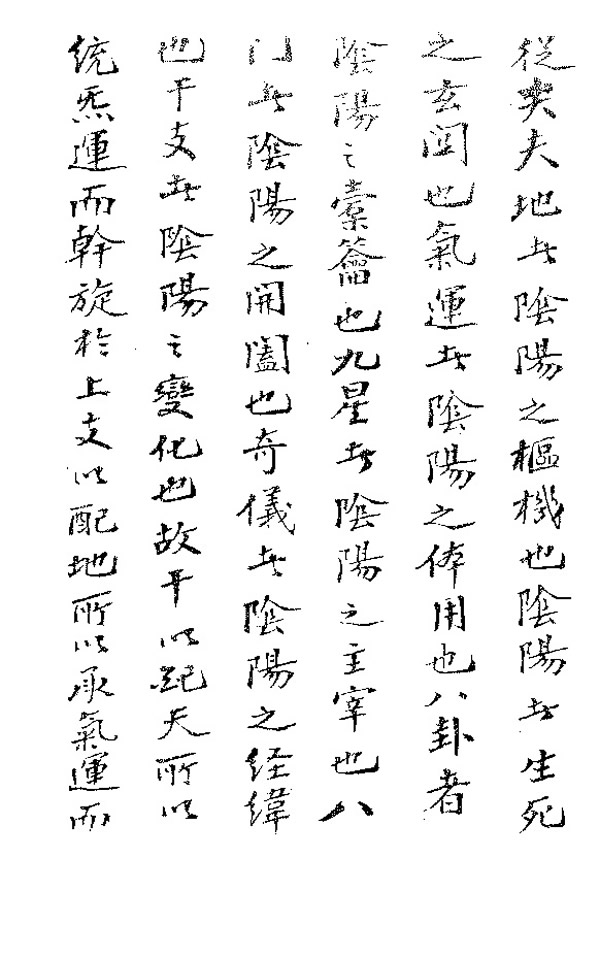 從夾夫地者陰陽之樞機也陰陽者生死
之玄関也氣運者陰陽之体用也八卦者
陰陽之橐籥也九星者陰陽之主宰也八
门者陰陽之開闔也奇儀者陰陽之经緯
也干支者陰陽之變化也故干以紀天所以
统炁運而幹旋於上支以配地所以承氣運而